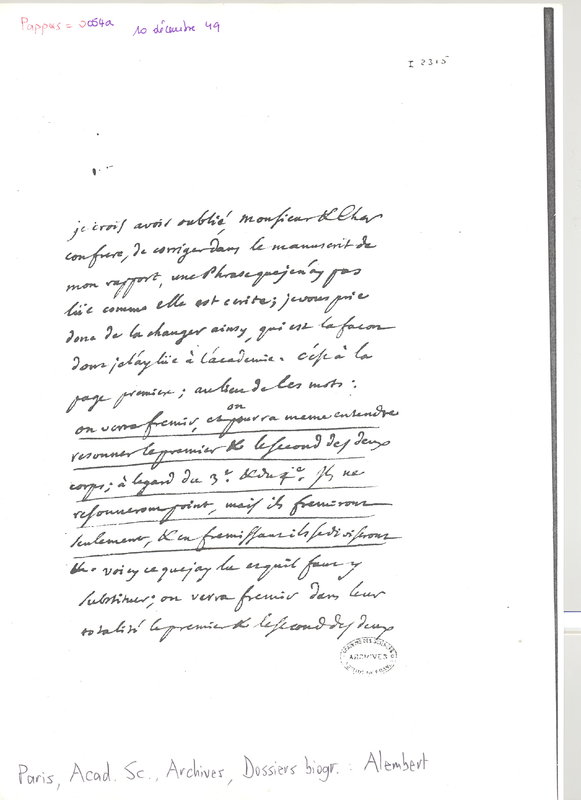 Pappus = 3054a
10 décembre 49
I 2315
je crois avoir oublié, monsieur & Cher
confrere, de corriger dans le manuscrit de
mon rapport, une Phrase que je n'ay pas
lüe comme elle est ecrite; je vous prie
donc de la changer ainsy, qui est la façon
dont je l'ay lüe à l'academie. c'est à la
page premiere; au lieu de les mots:
on verra fremir, et on pourra meme entendre
resonner le premier & le second des deux
corps; à legard du 3e. & du 4e. Ils ne
resonneront point, mais ils fremiront
seulement, & en fremissant ils se diviseront
&c. voicy ce que jay lu et quil faut y
substituer; on verra fremir dans leur
totalité le premier & le second des deux
ARCHIVES
Paris, Acad. Sc., Archives, Dossiers biogr. : Alembert